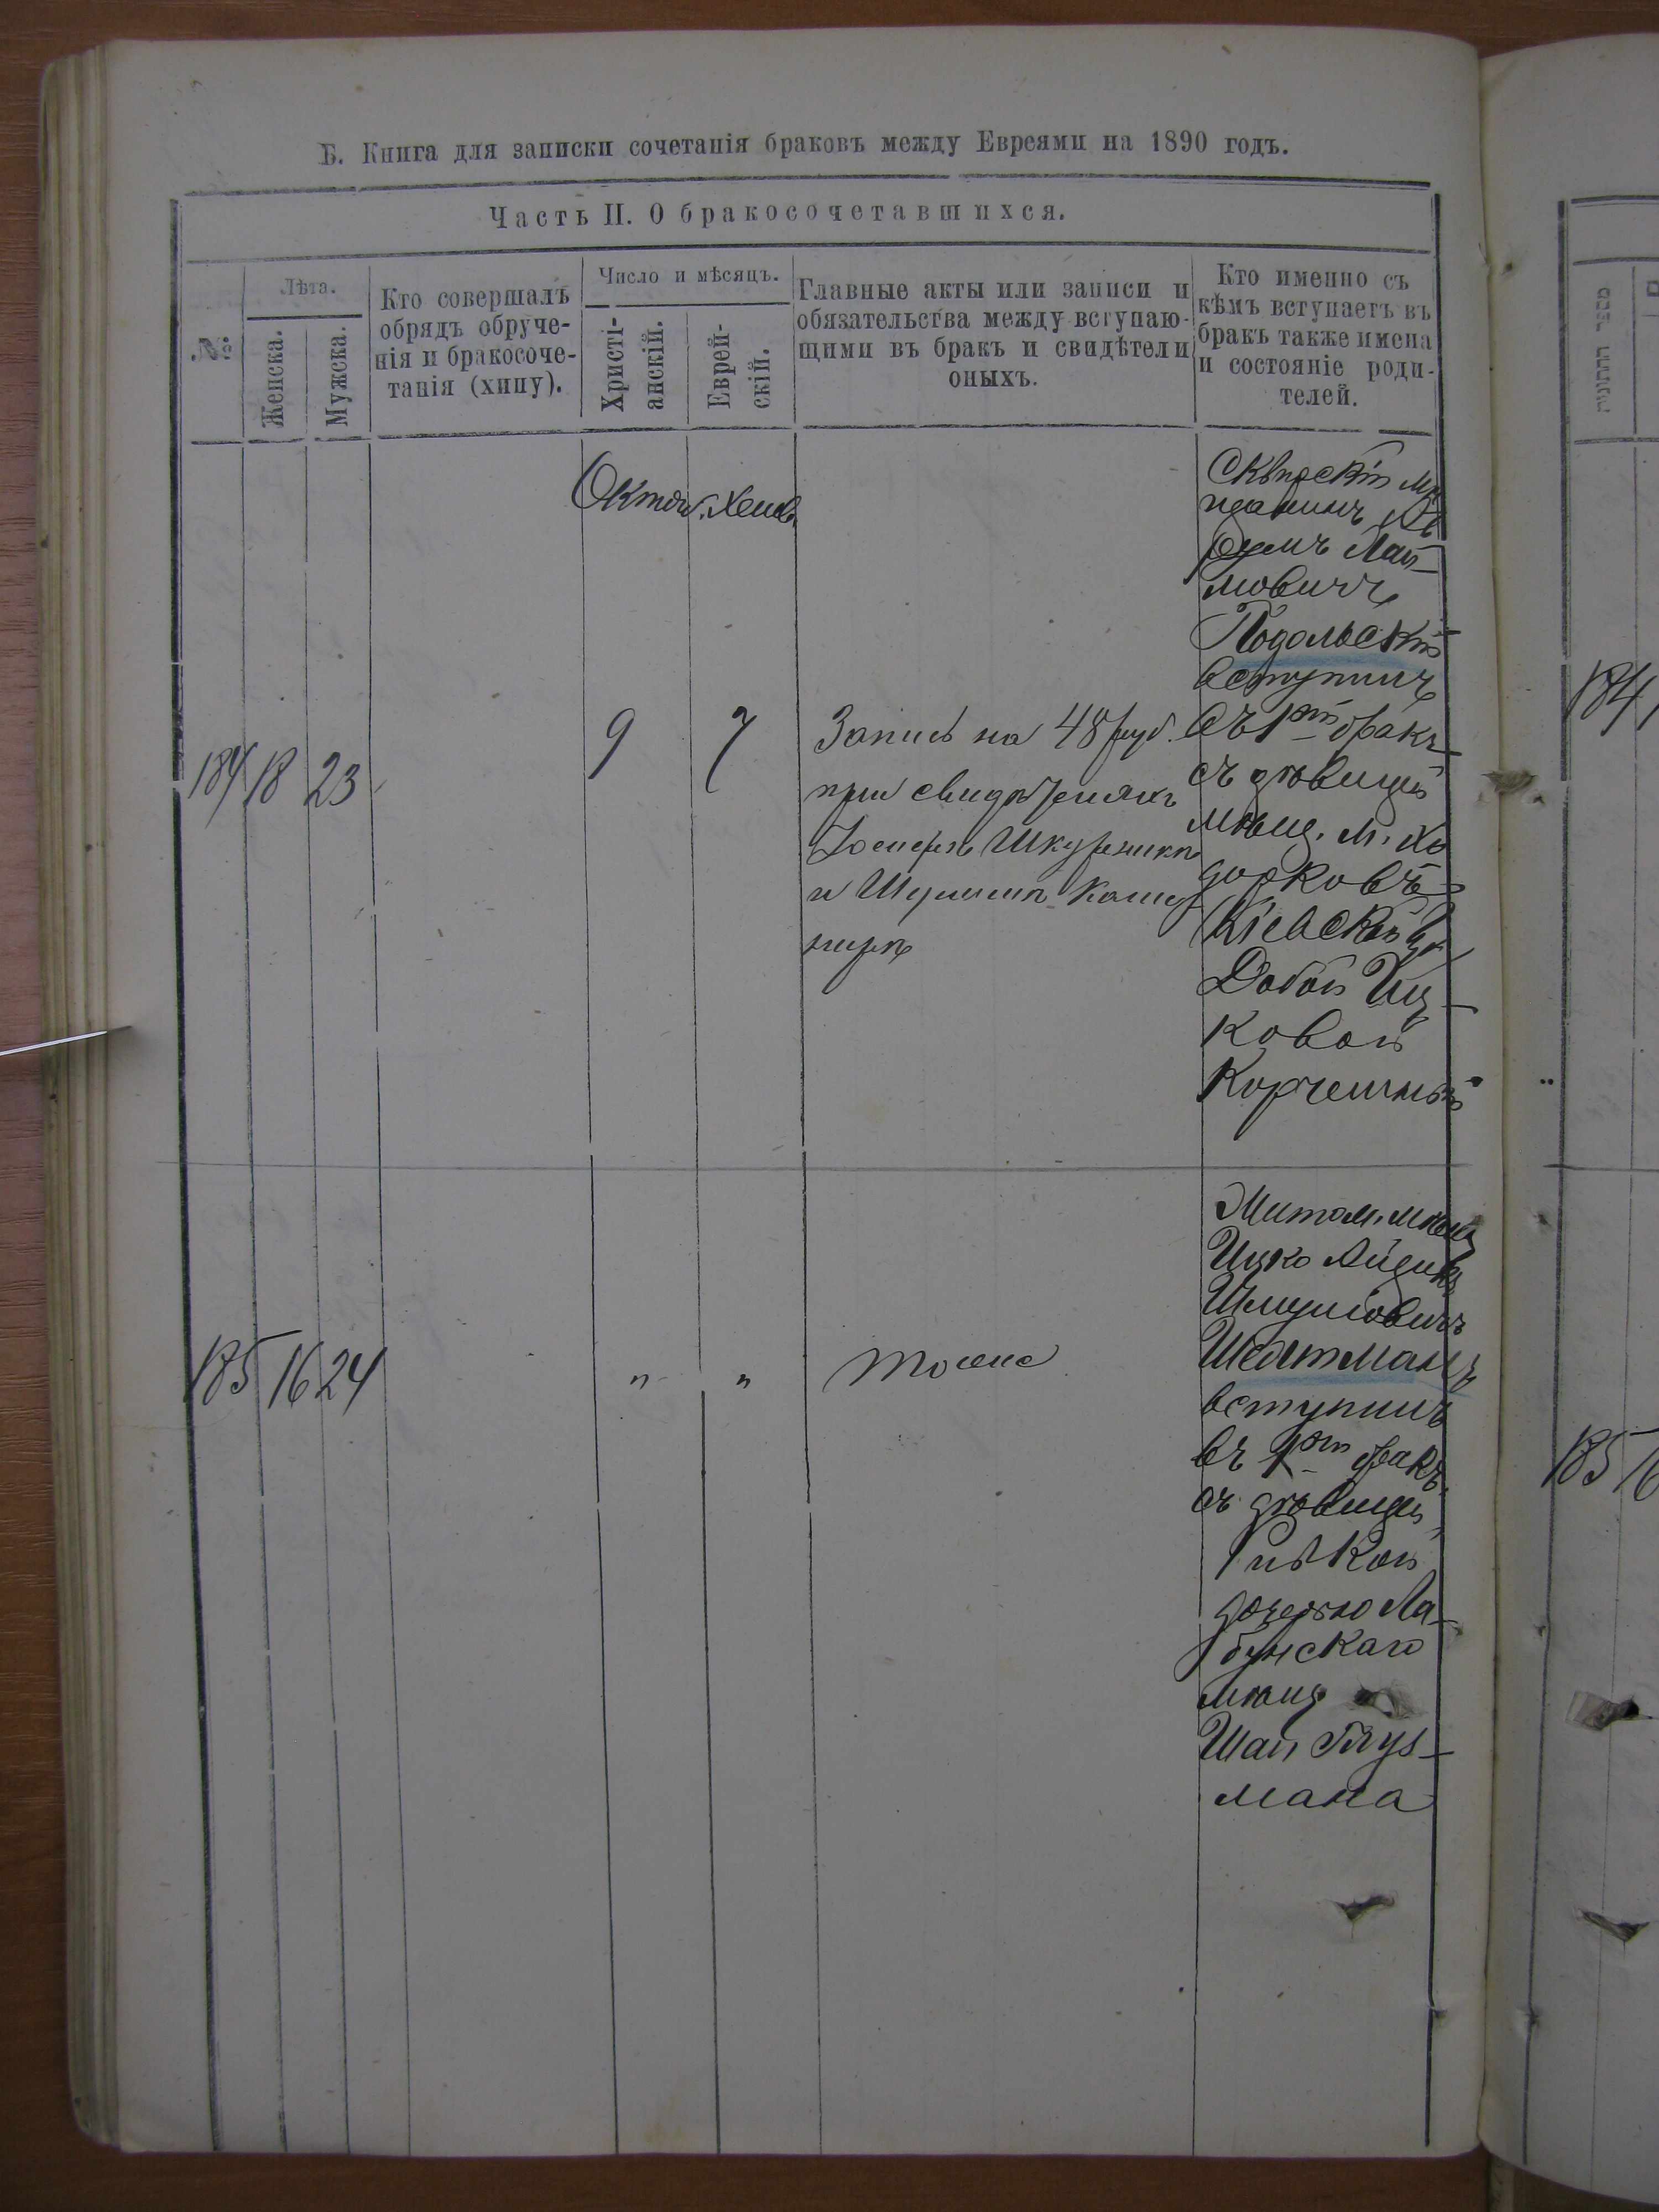 Б. Книга для записки сочетанія браковъ между Евреями на 1890 годъ.
Часть II. О бракосочетавшихся.
№
Лѣта.
Женска.
Мужска.
Кто совершалъ
обрядъ обруче-
нія и бракосоче-
танія (хипу).
Число и мѣсяцъ.
Христі-
анскій.
Еврей-
скій.
Главные акты или записи и
обязательства между вступаю-
щими въ бракъ и свидѣтели
оныхъ.
Кто именно съ
кѣмъ вступаетъ въ
бракъ также имена
и состояніе роди-
телей.
מספר החתונות
Октяб.
184 18 23
9 7
Запись на 48 руб.
при свидѣтеляхъ
Іосифѣ Шкурникѣ
и Шулимѣ Каш
нирѣ
Сквирскій мѣ
щанинъ
мовичъ
Подольскій
вступилъ
въ 1ый бракъ
съ дѣвицей
мѣщ. м. Хо
доркова
Кіевской губ
Добой Иц-
ковой
Корчемной
184
185 16 24
" "
тоже
Житом. мѣщ
Ицко Айзикъ
Шмулiовичъ
вступилъ
въ 1ый бракъ
съ дѣвицей
Ривкой
дочерью Ла-
бунскаго
мѣщ
Шаи Глуз-
мана
185 16